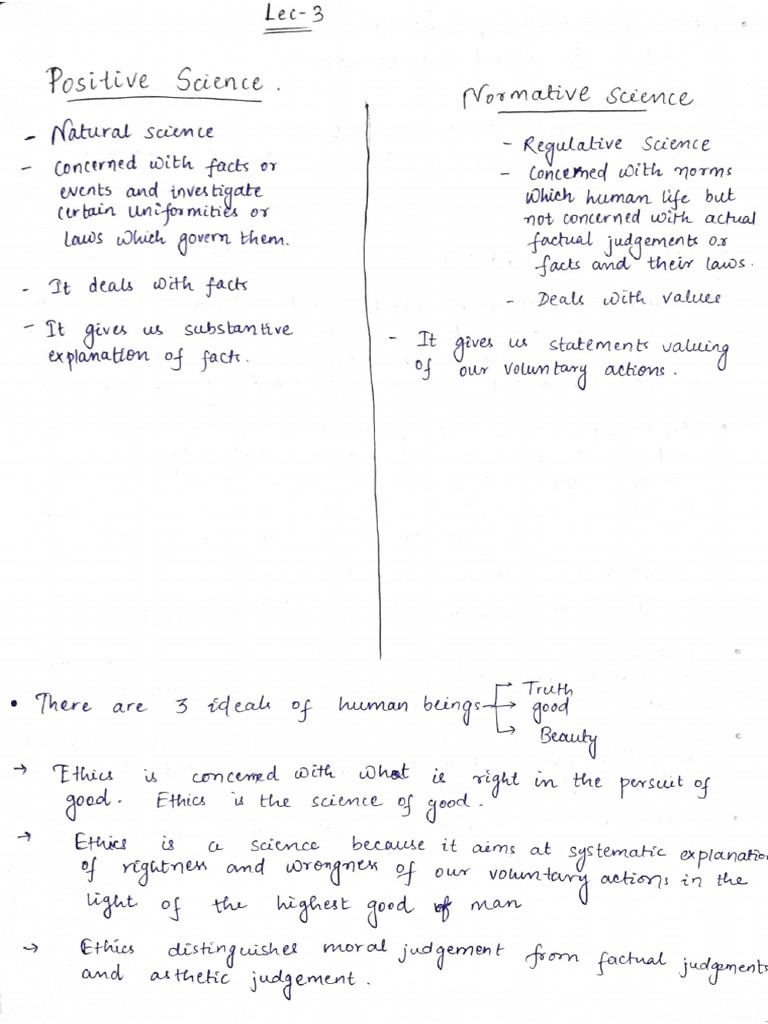 Lec-3
Positive Science.
- Natural science
- Concerned with facts or
events and investigate
certain uniformities or
laws which govern them.
- It deals with facts
- It gives us substantive
explanation of facts.
Normative Science
- Regulative Science
- Concerned with norms
which human life but
not concerned with actual
factual judgements or
facts and their laws.
- Deals with values
- It gives us statements valuing
of our voluntary actions.
• There are 3 ideals of human beings
Truth
good
Beauty
→ Ethics is concerned with what is right in the persuit of
good. Ethics is the science of good.
→ Ethics is a science because it aims at systematic explanation
of rightness and wrongness of our voluntary actions in the
light of the highest good of man
→ Ethics distinguishes moral judgement from factual judgements
and asthetic judgement.